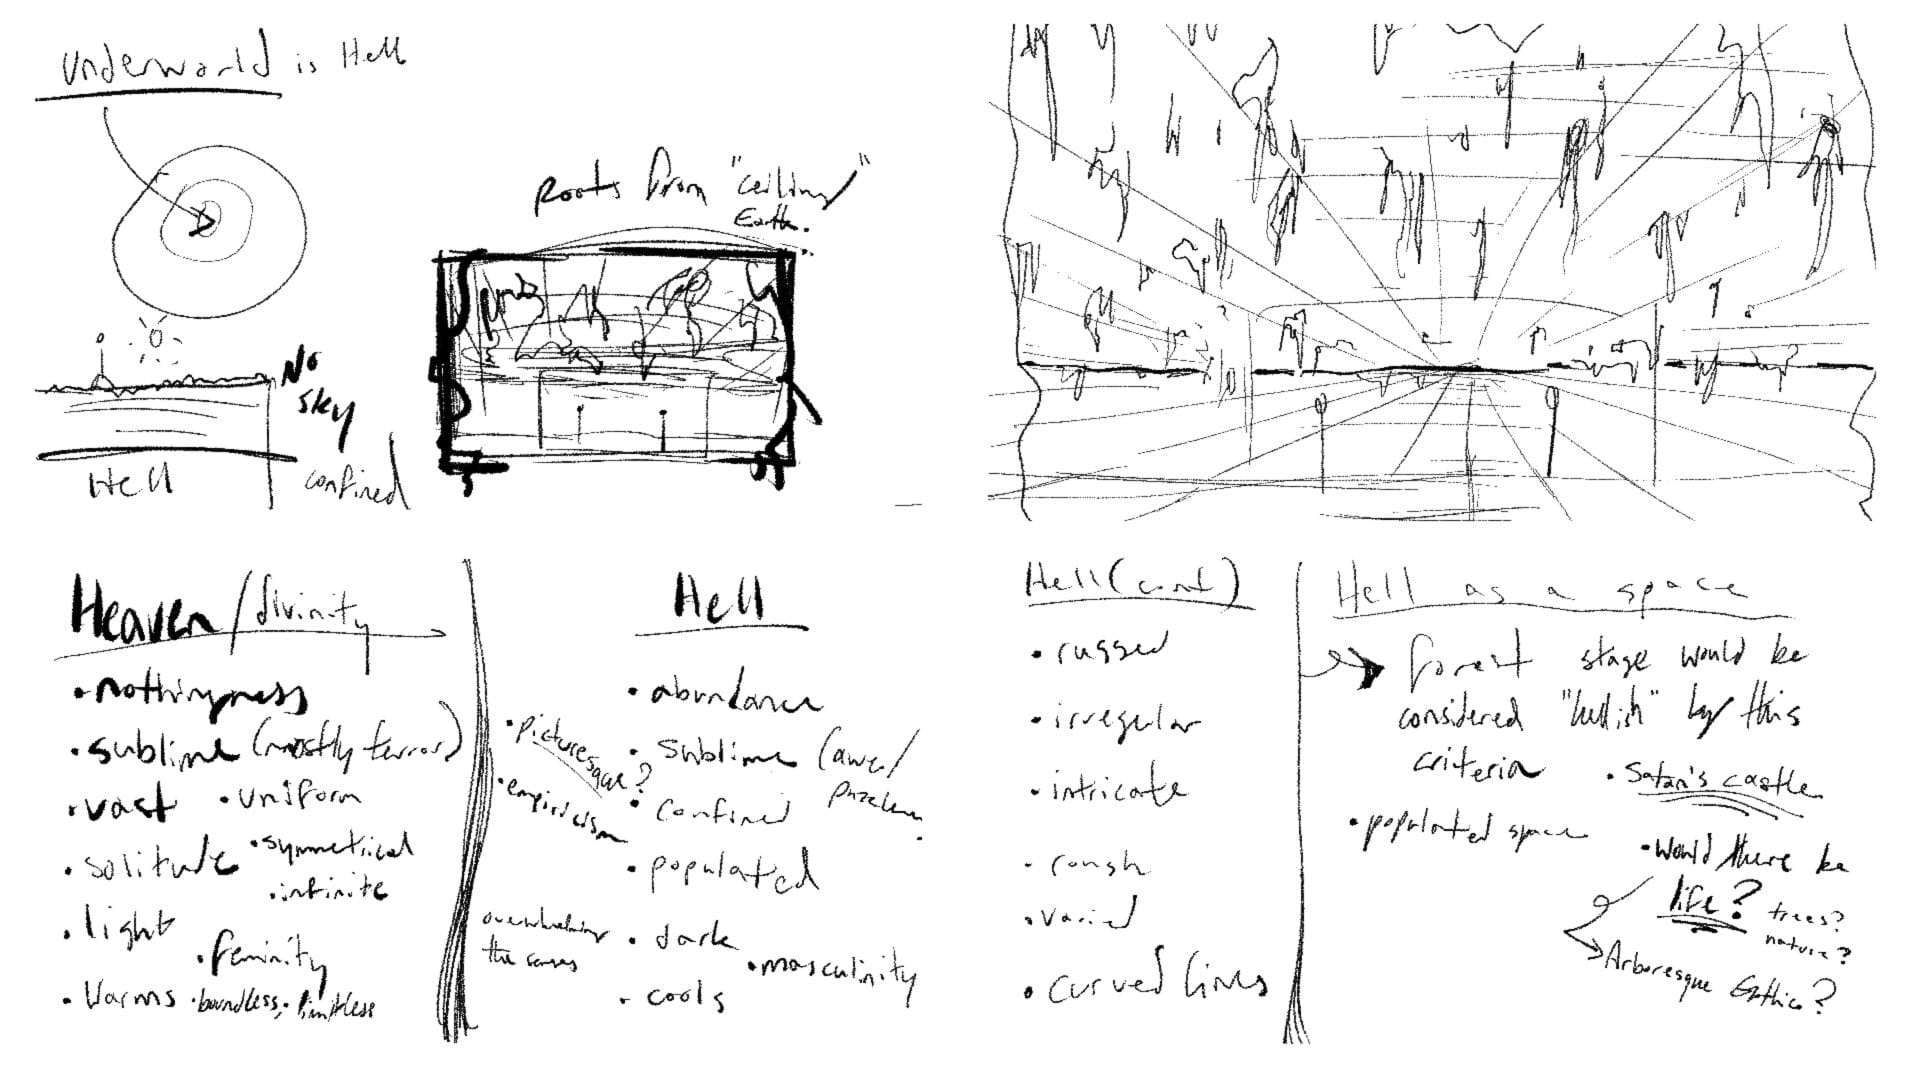 Underworld is Hell
Roots from "ceiling"
Earth.
No
sky
Hell
confined
Heaven/divinity
• nothingness
• sublime (mostly terror)
• vast • uniform
• solitude • symmetrical
• infinite
• light
• feminity
• Warms • boundless, • limitless
Hell
• abundance
• picturesque?
• sublime (awe/
• empiricism
• confined
• populated
overwhelming
the senses
• dark
• masculinity
• cools
Hell (cont)
• rugged
• irregular
• intricate
• rough
• varied
• curved lines
Hell as a space
forest stage would be
considered "hellish" by this
criteria
• Satan's castle
• populated space
• Would there be
life? trees?
nature?
Arboresque Gothic?